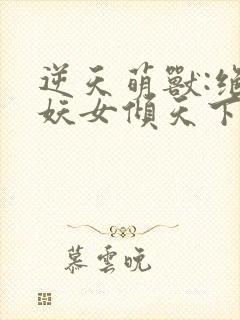 逆天萌獸:絕
妖女傾天下
慕雲晚